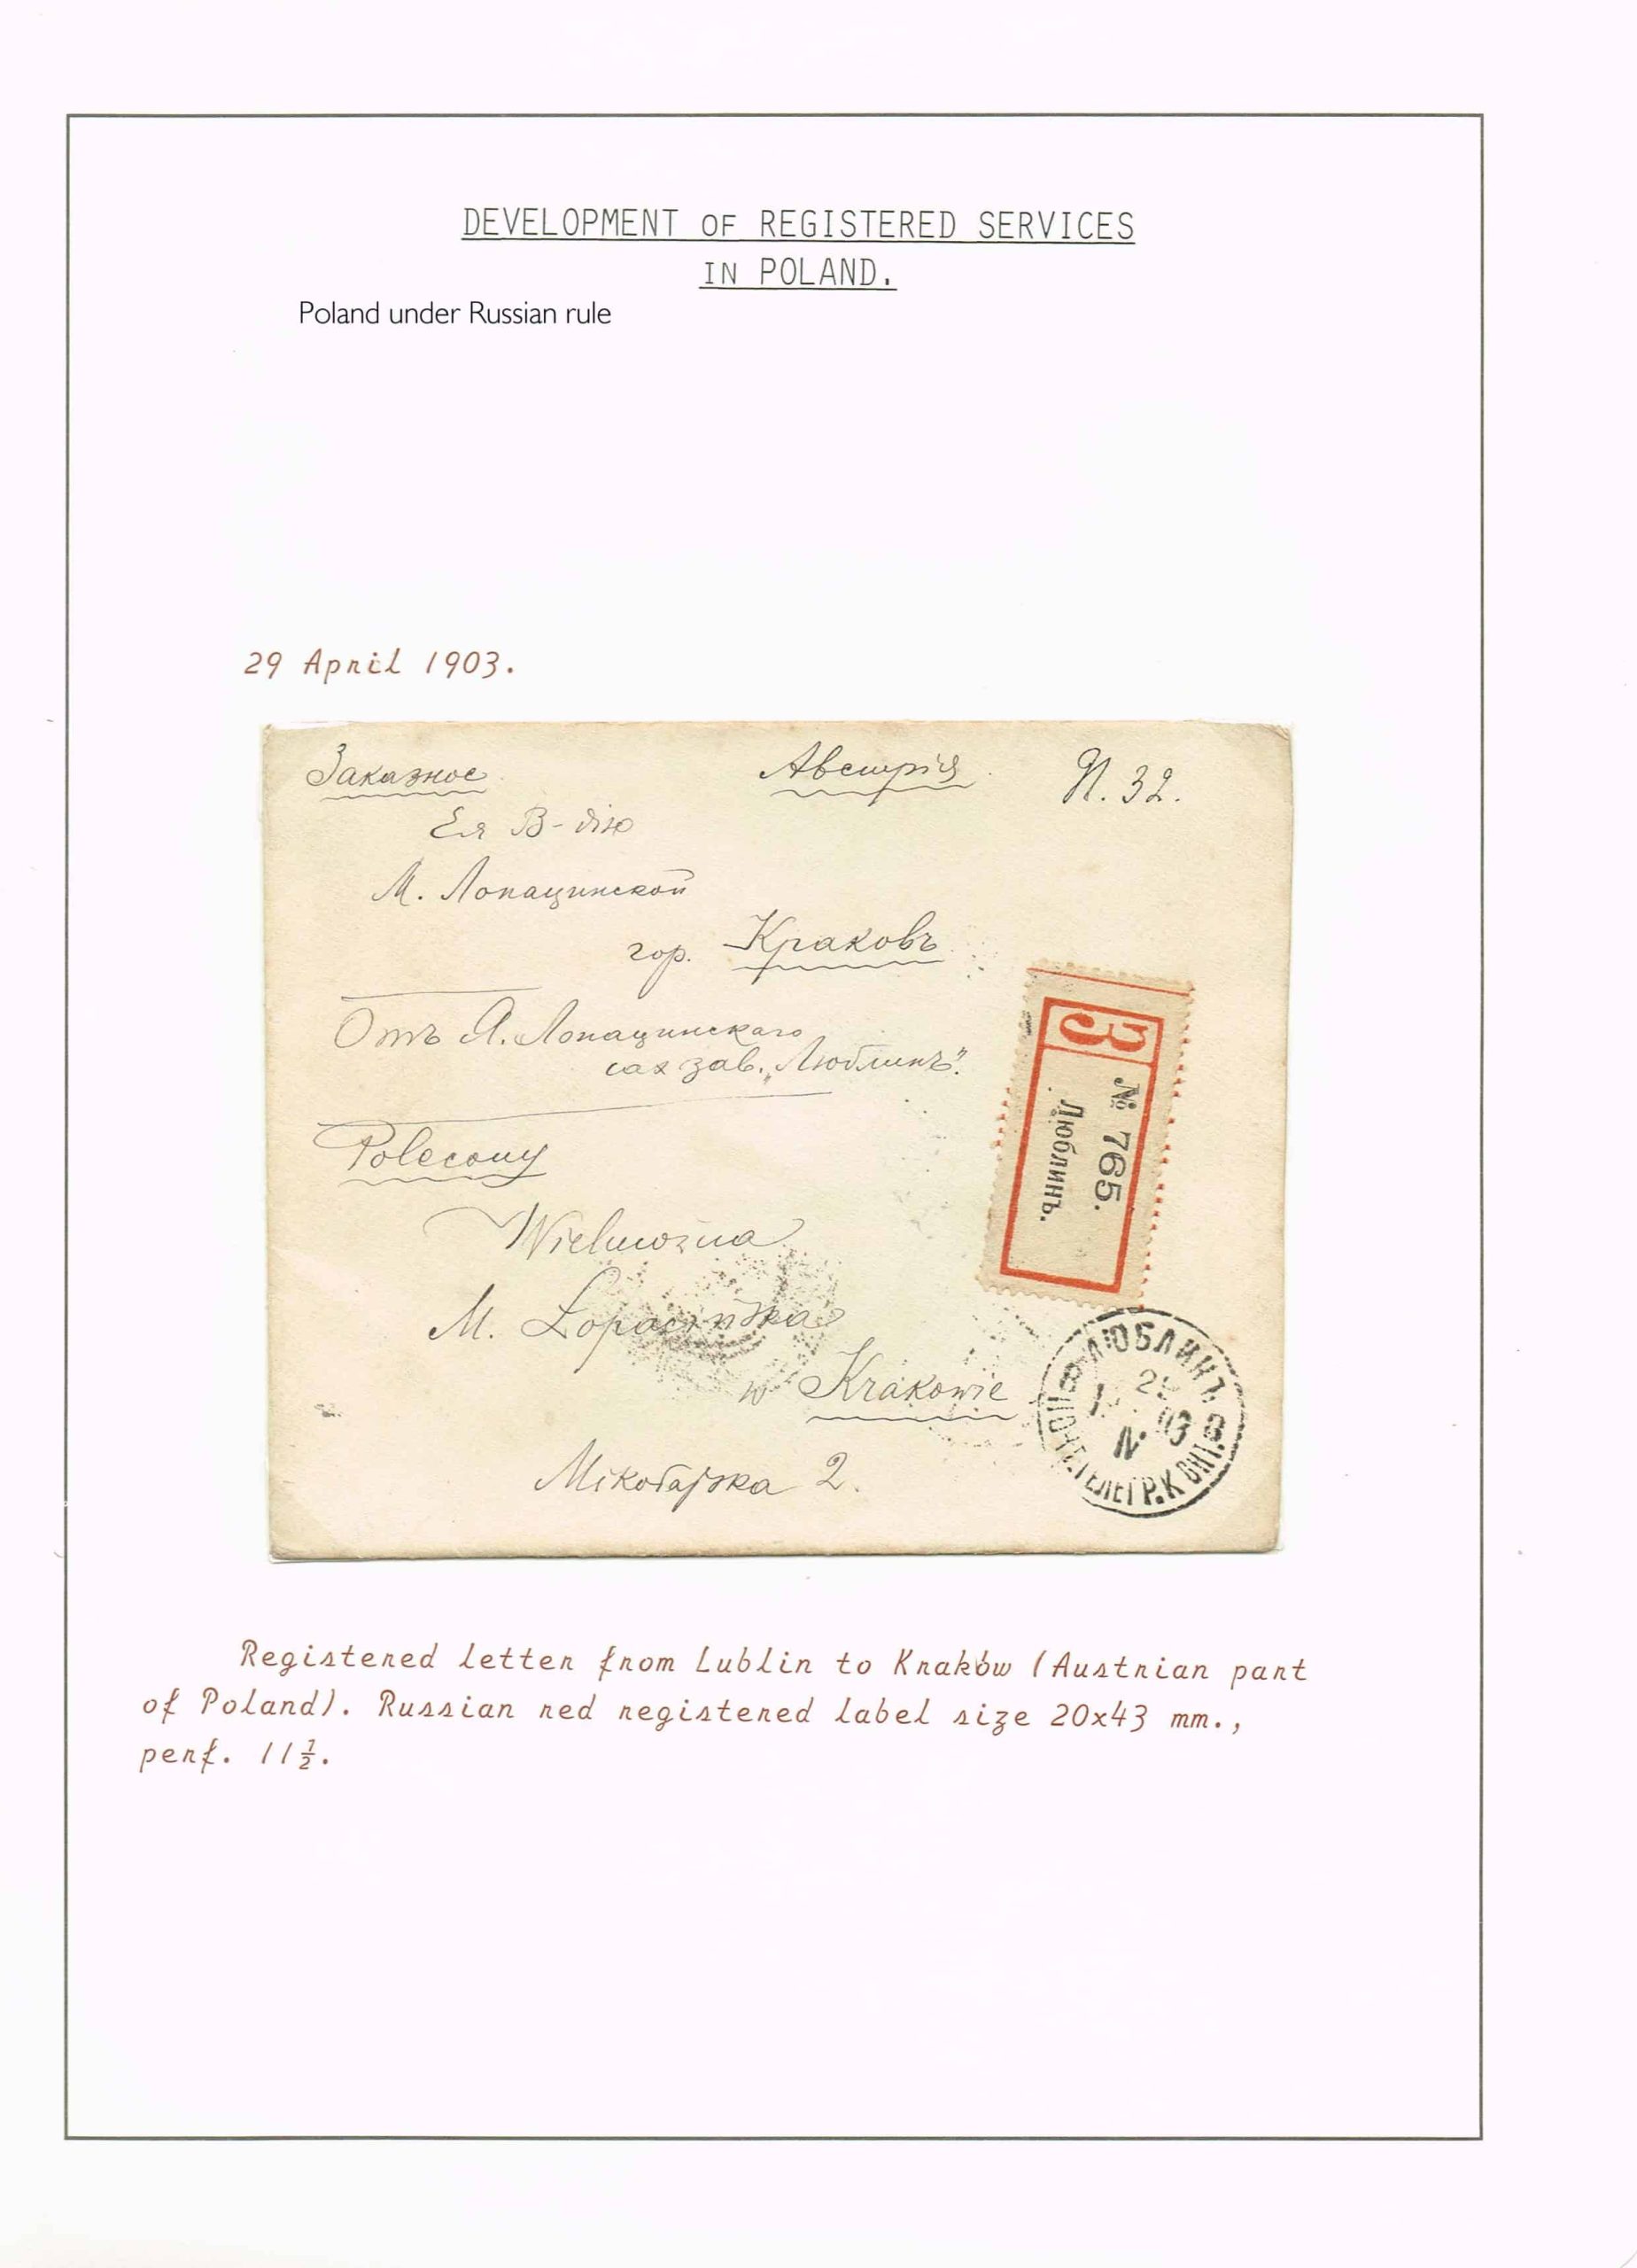 DEVELOPMENT OF REGISTERED SERVICES
IN POLAND.
Poland under Russian rule
29 April 1903.
Заказное
Австрія
N. 32.
Ея В-дію
М. Лопацинской
гор. Краковъ
Отъ Я. Лопацинскаго
сах зав. „Люблинъ".
З
№ 765.
Люблинъ.
Polecony
Wielmożna
M. Łopacińska
w Krakowie
Mikołajska 2.
ЛЮБЛИНЪ
IV 03
Registered letter from Lublin to Kraków (Austrian part
of Poland). Russian red registered label size 20x43 mm.,
perf. 11½.